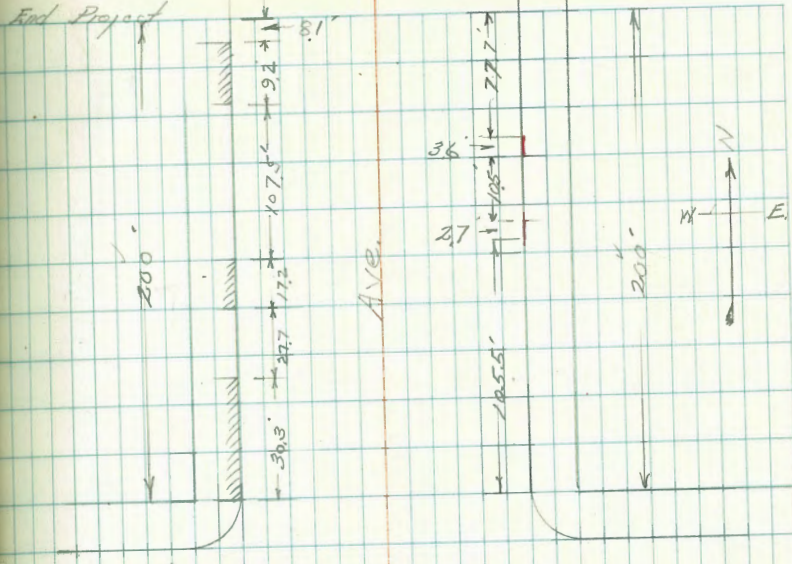 End Project
8.1'
9.2
107.5'
17.2
27.7
30.3'
200'
Ave.
77.7'
3.6
10.5'
2.7
105.5'
200'
N
W
E.